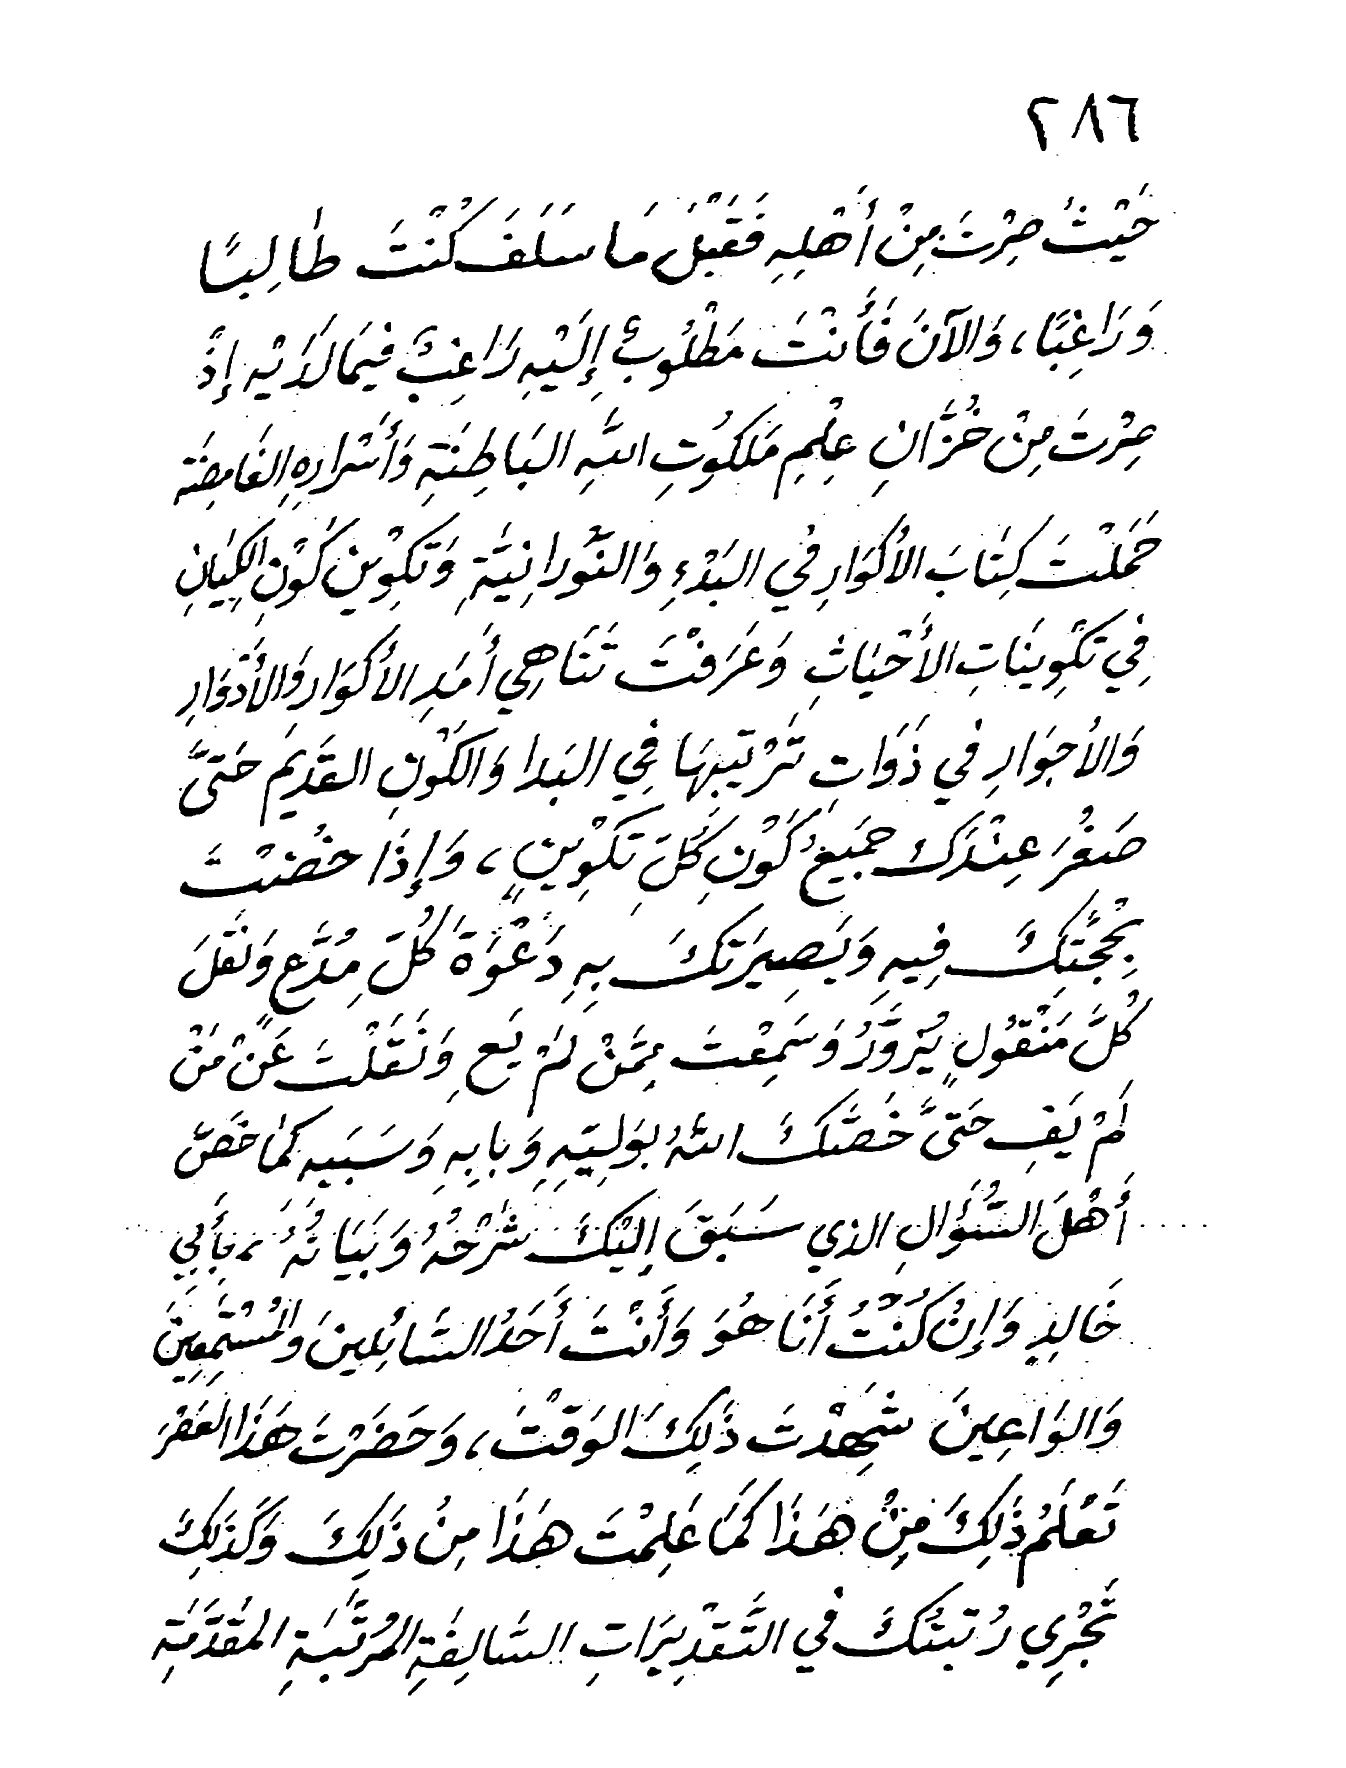 ٢٨٦
حَيْثُ صِرْتَ مِنْ أَهْلِهِ فَقَبْلَ مَا سَلَفَ كُنْتَ طَالِبًا
وَرَاغِبًا، وَالآنَ فَأَنْتَ مَطْلُوبٌ إِلَيْهِ رَاغِبٌ فِيمَا لَدَيْهِ إِذْ
صِرْتَ مِنْ خُزَّانِ عِلْمِ مَلَكُوتِ اللهِ البَاطِنَةِ وَأَسْرَارِهِ الغَامِضَةِ
حَمَلْتَ كِتَابَ الأَكْوَارِ فِي البَدْءِ وَالنُّورَانِيَّةِ وَتَكْوِينِ كَوْنِ الكِيَانِ
فِي تَكْوِينَاتِ الأَحْيَاتِ وَعَرَفْتَ تَنَاهِي أَمَدِ الأَكْوَارِ وَالأَدْوَارِ
وَالأَجْوَارِ فِي ذَوَاتِ تَرْتِيبِهَا فِي البَدَا وَالكَوْنِ القَدِيمِ حَتَّى
صَغُرَ عِنْدَكَ جَمِيعُ كَوْنِ كُلِّ تَكْوِينٍ، وَإِذَا خُضْتَ
بِحُجَّتِكَ فِيهِ وَبَصِيرَتِكَ بِهِ دَعْوَةَ كُلِّ مُدَّعٍ وَنَقْلَ
كُلِّ مَنْقُولٍ يُزَوَّرُ وَسَمِعْتَ مِمَّنْ لَمْ يَعِ وَنَقَلْتَ عَنْ مَنْ
لَمْ يَفِ حَتَّى خَصَّكَ اللهُ بِوَلِيِّهِ وَبَابِهِ وَسَبَبِهِ كَمَا خَصَّ
أَهْلَ السُّؤَالِ الذي سَبَقَ إِلَيْكَ شَرْحُهُ وَبَيَانُهُ، بِأَبِي
خَالِدٍ وَإِنْ كُنْتُ أَنَا هُوَ وَأَنْتَ أَحَدُ السَّائِلِينَ وَالمُسْتَمِعِينَ
وَالوَاعِينَ شَهِدْتَ ذَلِكَ الوَقْتَ، وَحَضَرْتَ هَذَا العَصْرَ
تَعْلَمُ ذَلِكَ مِنْ هَذَا كَمَا عَلِمْتَ هَذَا مِنْ ذَلِكَ وَكَذَلِكَ
تَجْرِي رُتْبَتُكَ فِي التَّقْدِيرَاتِ السَّالِفَةِ المُرَتَّبَةِ المُقَدَّمَةِ